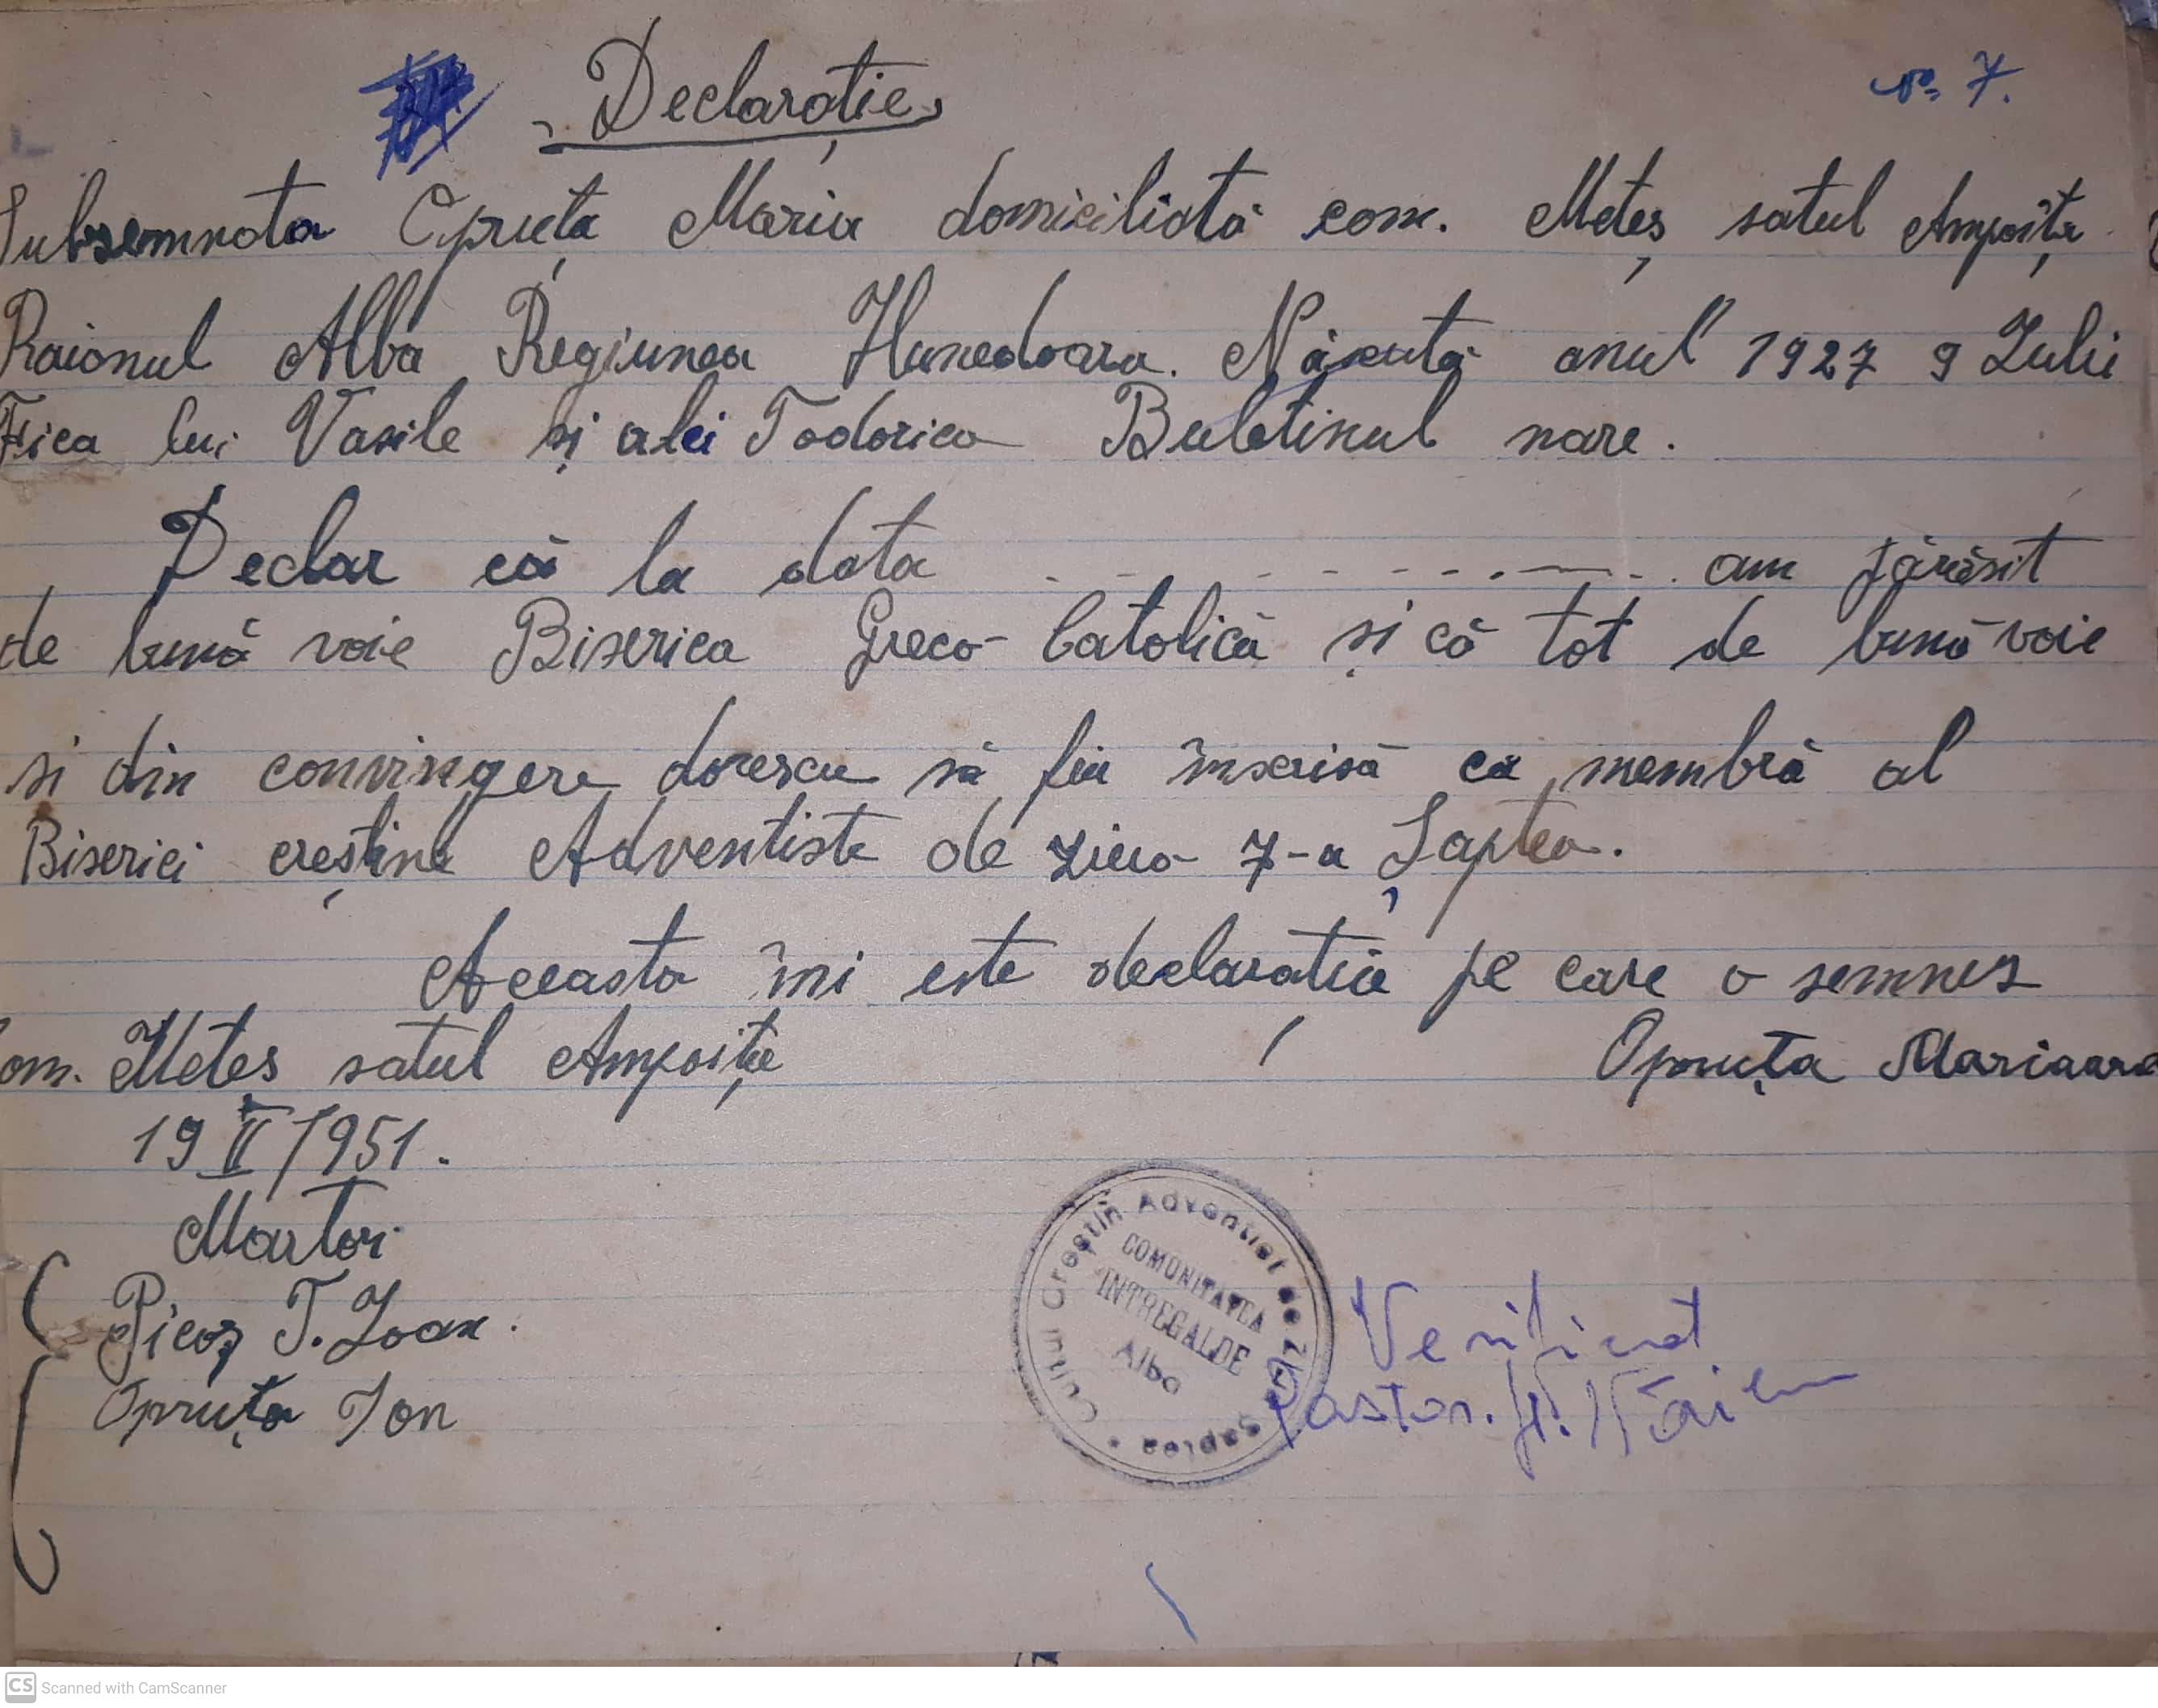 Declarație
No. 7.
Subsemnata Opruța Maria domiciliată com. Meteș satul Ampoița
Raionul Alba Regiunea Hunedoara. Născută anul 1927 9 Iulii
Fica lui Vasile și alei Todorica Buletinul nare.
Declar că la data - - - - - - - - - - am părăsit
de bună voie Biserica Greco-Catolică și că tot de bună voie
si din convingere dorescu să fiu înscrisă ca membră al
Biserici creștine Adventiste de ziua 7-a Șaptea.
Aceasta îmi este declarația pe care o semnez
com. Metes satul Ampoița
Opruța Mariaara
19 II 1951.
Martori
Picoș T. Ioan.
Opruța Ion
Cultul Creștin Adventist de Ziua Șaptea
COMUNITATEA
INTREGALDE
Alba
Verificat
Pastor.
Scanned with CamScanner